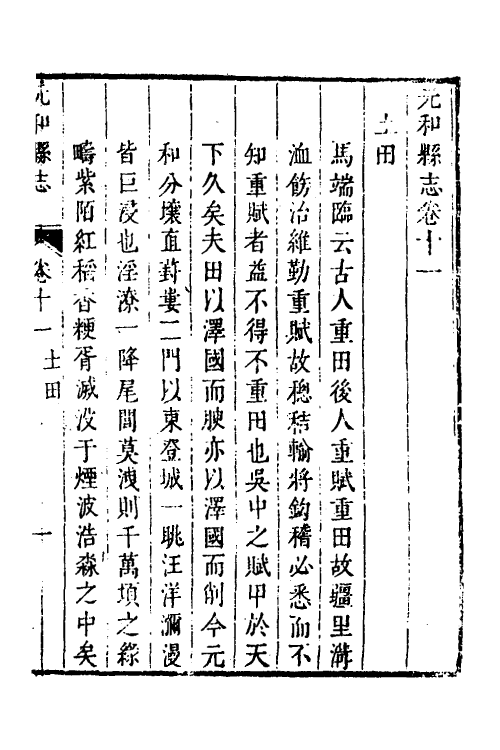 元和縣志卷十一
土田
馬端臨云古人重田後人重賦重田故疆里溝
洫飭治維勤重賦故穗秸輸將鈎稽必悉而不
知重賦者益不得不重田也吳中之賦甲於天
下久矣夫田以澤國而腴亦以澤國而削今元
和分壤直葑婁二門以東登城一眺汪洋瀰漫
皆巨浸也淫潦一降尾閭莫洩則千萬頃之綠
疇紫陌紅稻香粳胥滅沒于煙波浩淼之中矣
元和縣志
卷十一
土田
一